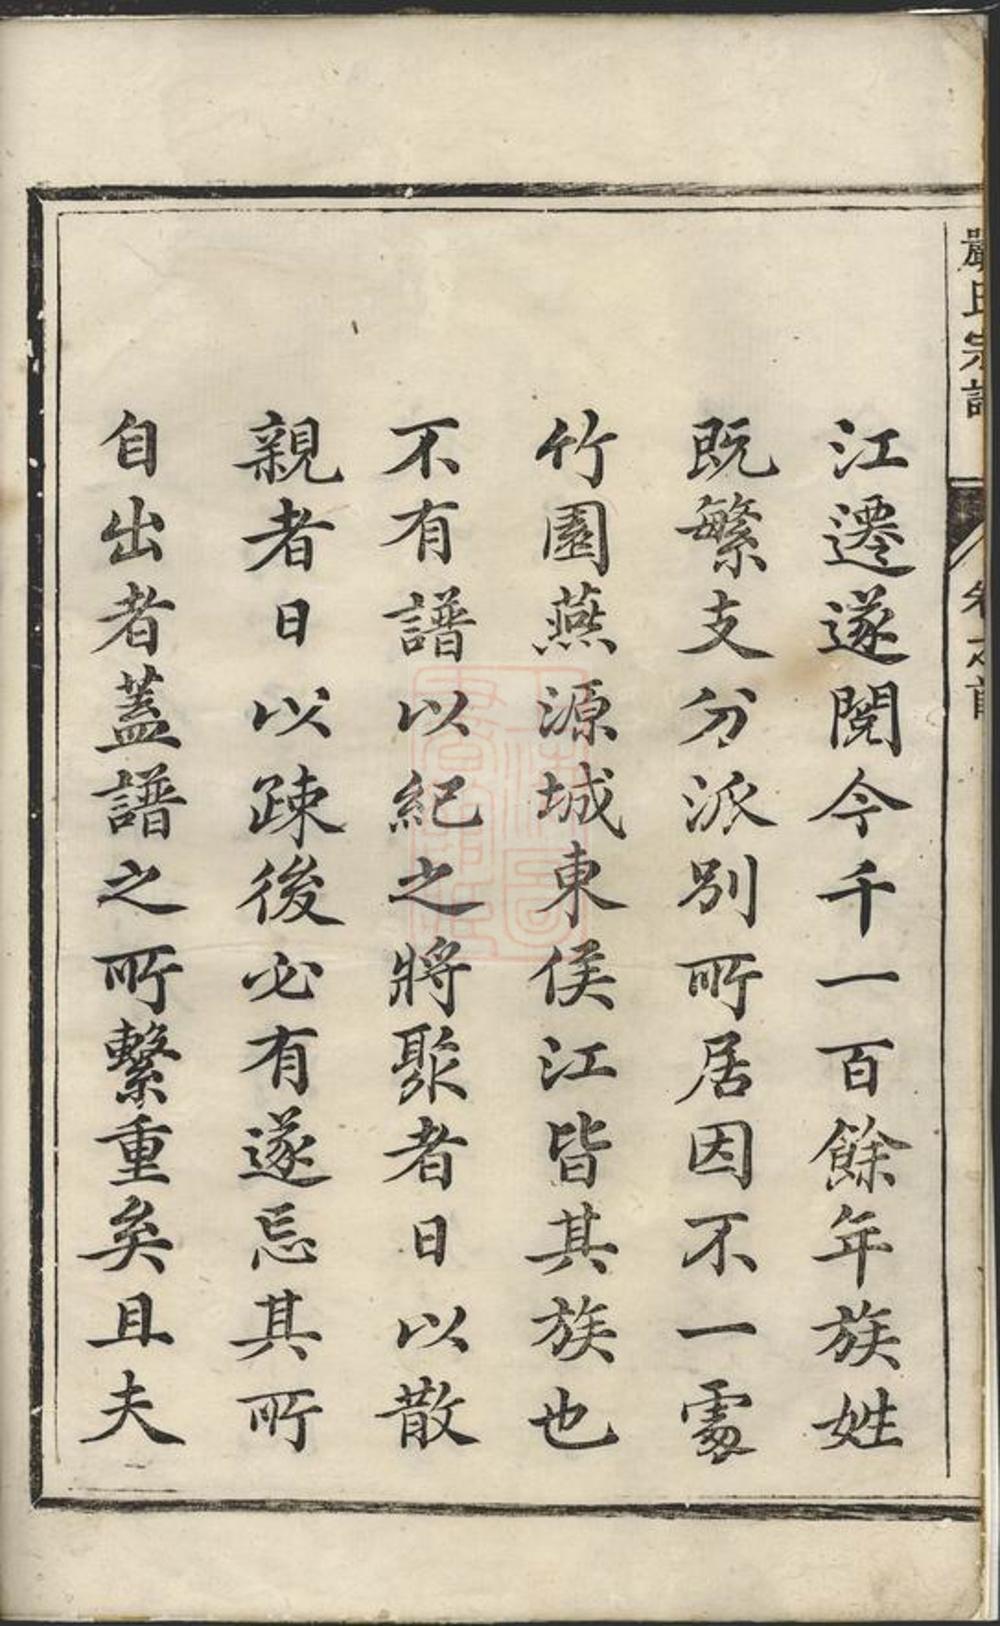 嚴氏宗譜
卷之首
江遷遂閱今千一百餘年族姓
既繁支分派別所居因不一處
竹園燕源城東侯江皆其族也
不有譜以紀之將聚者日以散
親者日以疎後必有遂忘其所
自出者蓋譜之所繫重矣且夫